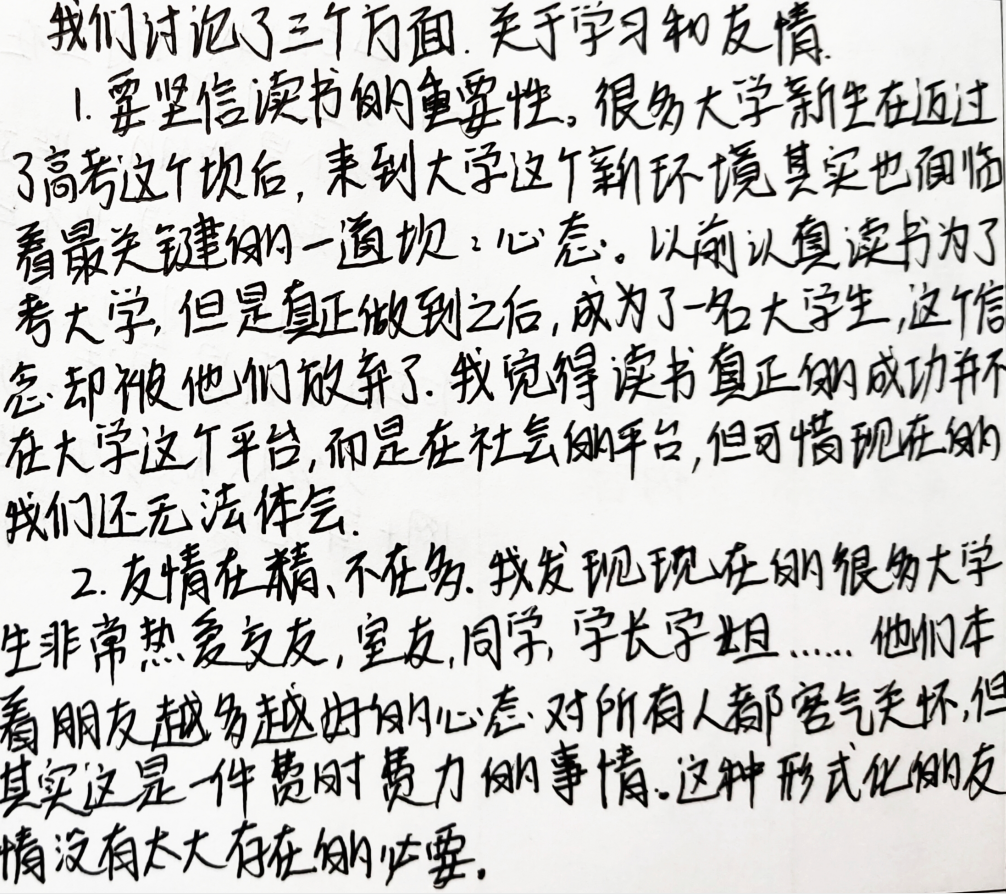 我们讨论了三个方面.关于学习和友情.
1.要坚信读书的重要性。很多大学新生在迈过
了高考这个坎后,来到大学这个新环境其实也面临
着最关键的一道坎:心态。以前认真读书为了
考大学,但是真正做到之后,成为了一名大学生,这个信
念却被他们放弃了.我觉得读书真正的成功并不
在大学这个平台,而是在社会的平台,但可惜现在的
我们还无法体会.
2.友情在精、不在多.我发现现在的很多大学
生非常热爱交友,室友,同学,学长学姐……他们本
着朋友越多越好的心态对所有人都客气关怀,但
其实这是一件费时费力的事情。这种形式化的友
情没有太大存在的必要。